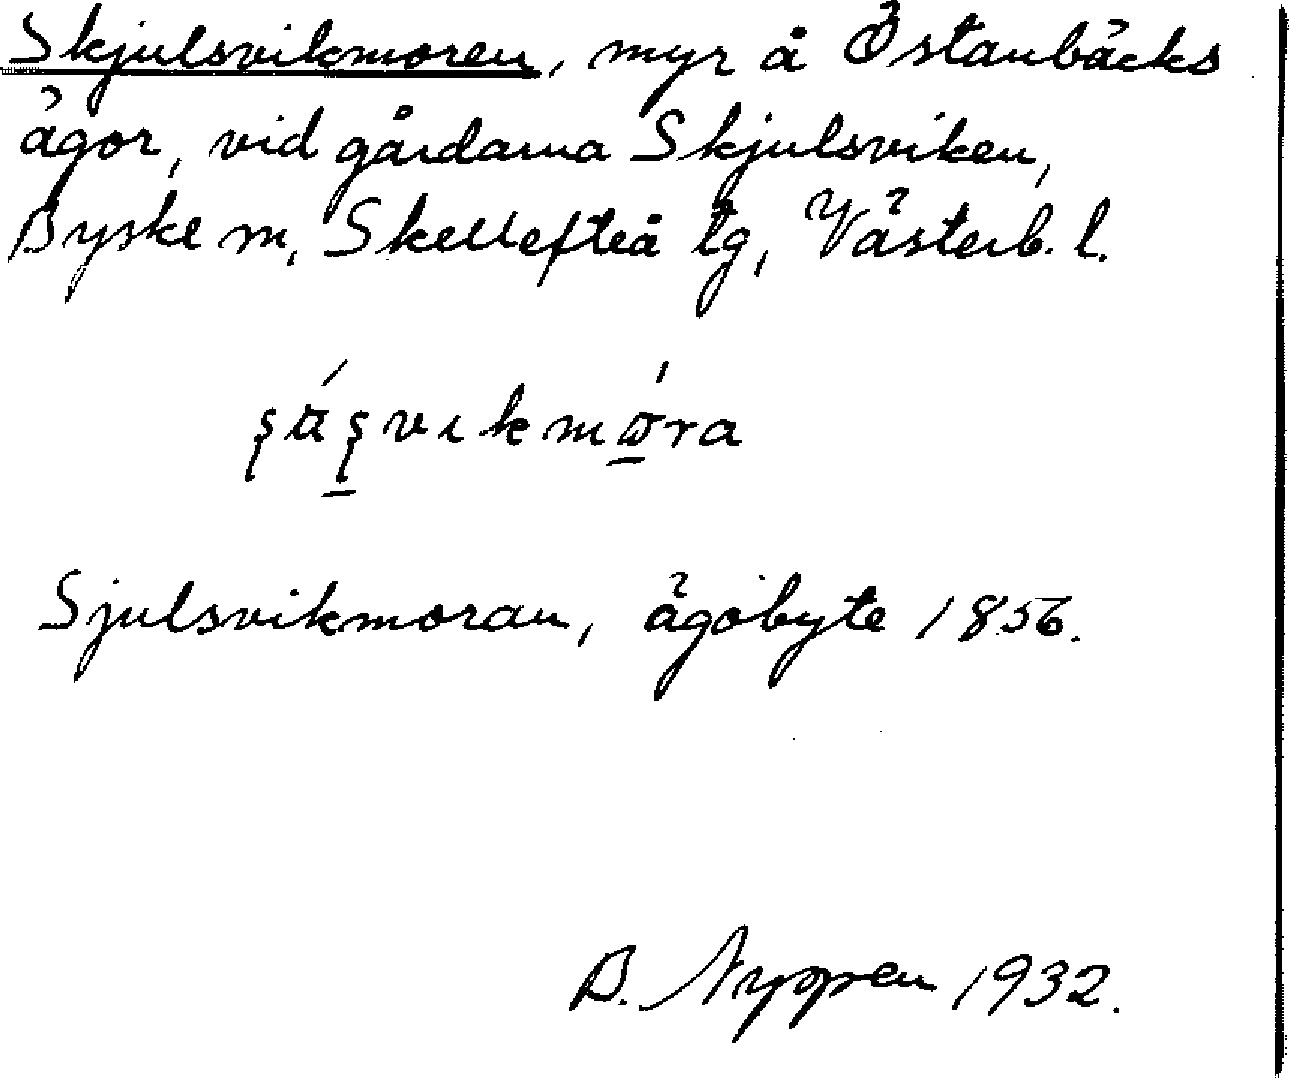 Skjulsvikmoren, myr å Östanbäcks
ägor, vid gårdarna Skjulsviken,
Byske sn, Skellefteå tg, Västerb. l.
Sjulsvikmoran, ägobyte 1856.
B. Nyppen 1932.